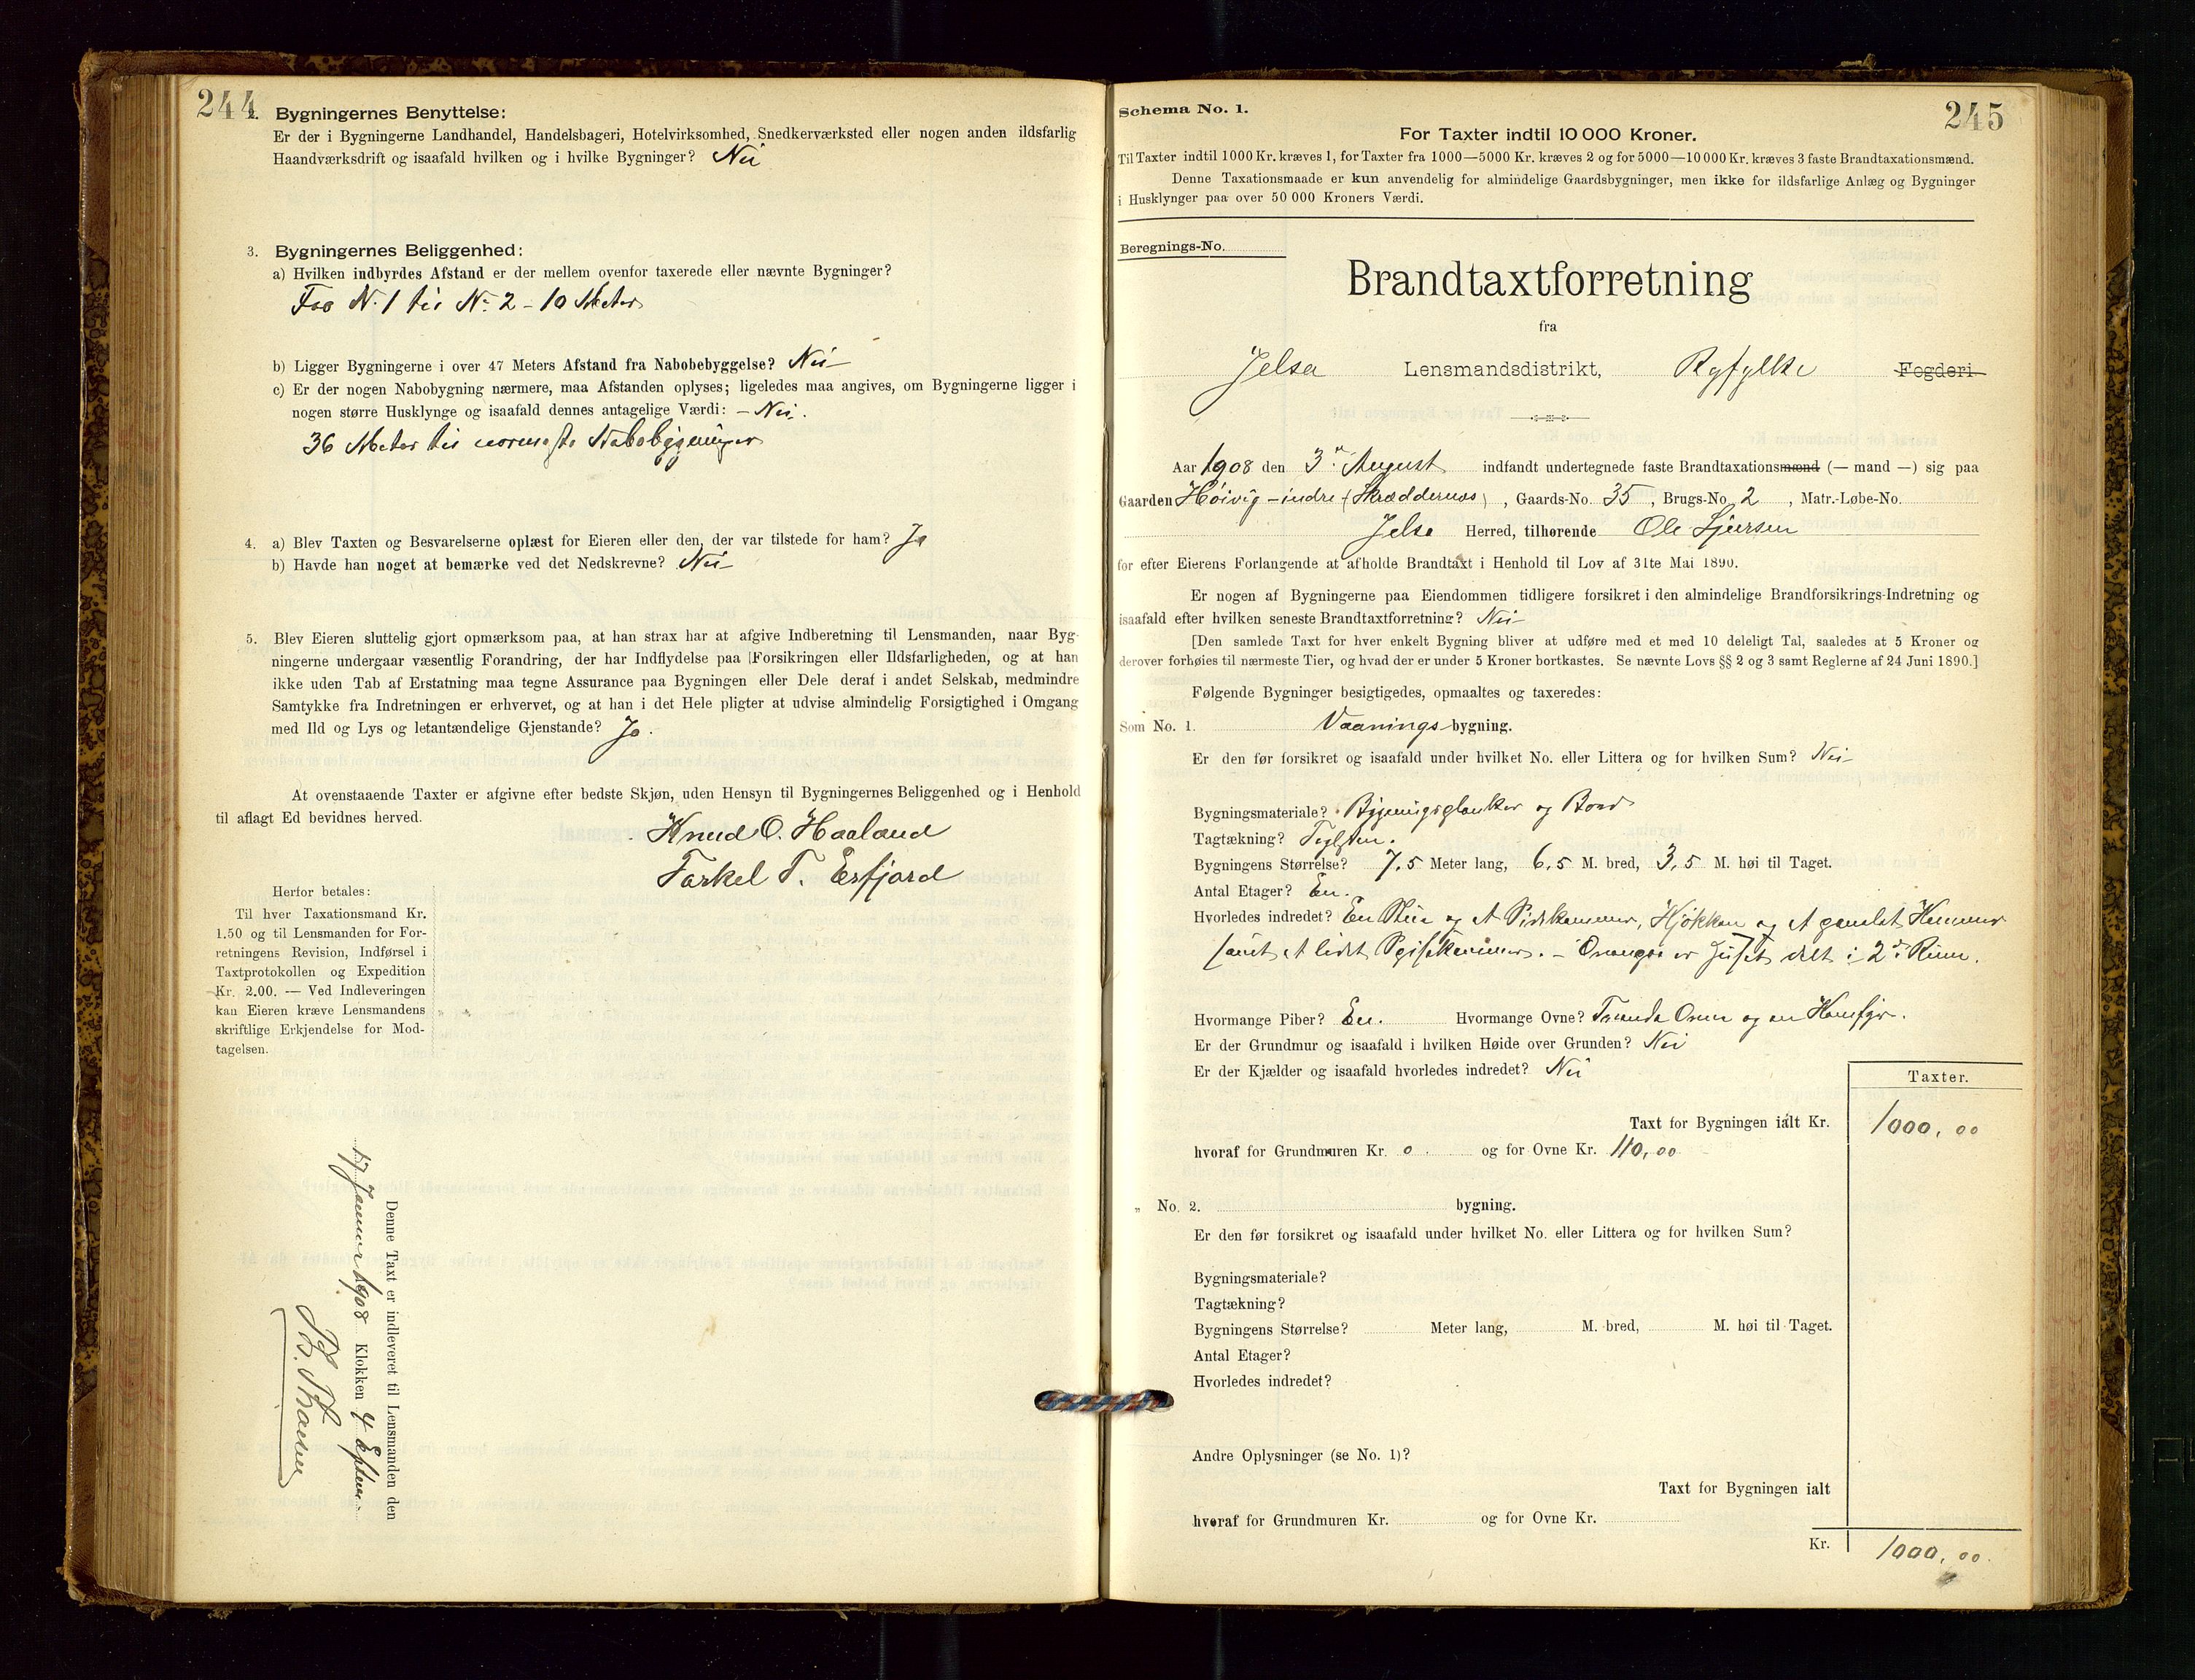 244
2. Bygningernes Benyttelse:
Er der i Bygningerne Landhandel, Handelsbageri, Hotelvirksomhed, Snedkerværksted eller nogen anden ildsfarlig
Haandværksdrift og isaafald hvilken og i hvilke Bygninger? Nei
3. Bygningernes Beliggenhed:
a) Hvilken indbyrdes Afstand er der mellem ovenfor taxerede eller nævnte Bygninger?
Fra N. 1 til N. 2 - 10 Meter
b) Ligger Bygningerne i over 47 Meters Afstand fra Nabobebyggelse? Nei
c) Er der nogen Nabobygning nærmere, maa Afstanden oplyses; ligeledes maa angives, om Bygningerne ligger i
nogen større Husklynge og isaafald dennes antagelige Værdi: - Nei.
36 Meter til nærmeste Nabobygninger
4. a) Blev Taxten og Besvarelserne oplæst for Eieren eller den, der var tilstede for ham? Ja
b) Havde han noget at bemærke ved det Nedskrevne? Nei
5. Blev Eieren sluttelig gjort opmærksom paa, at han strax har at afgive Indberetning til Lensmanden, naar Byg-
ningerne undergaar væsentlig Forandring, der har Indflydelse paa Forsikringen eller Ildsfarligheden, og at han
ikke uden Tab af Erstatning maa tegne Assurance paa Bygningen eller Dele deraf i andet Selskab, medmindre
Samtykke fra Indretningen er erhvervet, og at han i det Hele pligter at udvise almindelig Forsigtighed i Omgang
med Ild og Lys og letantændelige Gjenstande? Ja.
At ovenstaaende Taxter er afgivne efter bedste Skjøn, uden Hensyn til Bygningernes Beliggenhed og i Henhold
til aflagt Ed bevidnes herved.
Knud O. Haaland
Torkel T. Erfjord
Herfor betales:
Til hver Taxationsmand Kr.
1.50 og til Lensmanden for For-
retningens Revision, Indførsel i
Taxtprotokollen og Expedition
Kr. 2.00. — Ved Indleveringen
kan Eieren kræve Lensmandens
skriftlige Erkjendelse for Mod-
tagelsen.
Denne Taxt er indleveret til Lensmanden den
17 Januar 1908 Klokken 4 Efterm.
245
Schema No. 1.
For Taxter indtil 10 000 Kroner.
Til Taxter indtil 1000 Kr. kræves 1, for Taxter fra 1000—5000 Kr. kræves 2 og for 5000—10 000 Kr. kræves 3 faste Brandtaxationsmænd.
Denne Taxationsmaade er kun anvendelig for almindelige Gaardsbygninger, men ikke for ildsfarlige Anlæg og Bygninger
i Husklynger paa over 50 000 Kroners Værdi.
Beregnings-No.
Brandtaxtforretning
fra
Jelsa Lensmandsdistrikt, Ryfylke Fogderi
Aar 1908 den 3 August indfandt undertegnede faste Brandtaxationsmænd (— mand —) sig paa
Gaarden Høivig - indre (Skræddernes), Gaards-No. 35, Brugs-No. 2, Matr.-Løbe-No.
Jelsa Herred, tilhørende Ole Sjursen
for efter Eierens Forlangende at afholde Brandtaxt i Henhold til Lov af 31te Mai 1890.
Er nogen af Bygningerne paa Eiendommen tidligere forsikret i den almindelige Brandforsikrings-Indretning og
isaafald efter hvilken seneste Brandtaxtforretning? Nei
[Den samlede Taxt for hver enkelt Bygning bliver at udføre med et med 10 deleligt Tal, saaledes at 5 Kroner og
derover forhøies til nærmeste Tier, og hvad der er under 5 Kroner bortkastes. Se nævnte Lovs §§ 2 og 3 samt Reglerne af 24 Juni 1890.]
Følgende Bygninger besigtigedes, opmaaltes og taxeredes:
Som No. 1. Vaanings bygning.
Er den før forsikret og isaafald under hvilket No. eller Littera og for hvilken Sum? Nei
Bygningsmateriale? Bygningsplanker og Bord
Tagtækning? Teglsten.
Bygningens Størrelse? 7,5 Meter lang, 6,5 M. bred, 3,5 M. høi til Taget.
Antal Etager? En.
Hvorledes indredet? En Stue og et Sidekammer, Kjøkken og et gamlet Kammer
samt et lidet Spisekammer. - Ovenpaa er huset delt i 2 Rum.
Hvormange Piber? En. Hvormange Ovne? Tvende Ovne og en Komfyr.
Er der Grundmur og isaafald i hvilken Høide over Grunden? Nei
Er der Kjælder og isaafald hvorledes indredet? Nei
Taxter.
Taxt for Bygningen ialt Kr. 1000,00
hvoraf for Grundmuren Kr. 0 og for Ovne Kr. 110,00
„ No. 2. bygning.
Er den før forsikret og isaafald under hvilket No. eller Littera og for hvilken Sum?
Bygningsmateriale?
Tagtækning?
Bygningens Størrelse? Meter lang, M. bred, M. høi til Taget.
Antal Etager?
Hvorledes indredet?
Andre Oplysninger (se No. 1)?
Taxt for Bygningen ialt
hvoraf for Grundmuren Kr. og for Ovne Kr.
Kr. 1000,00